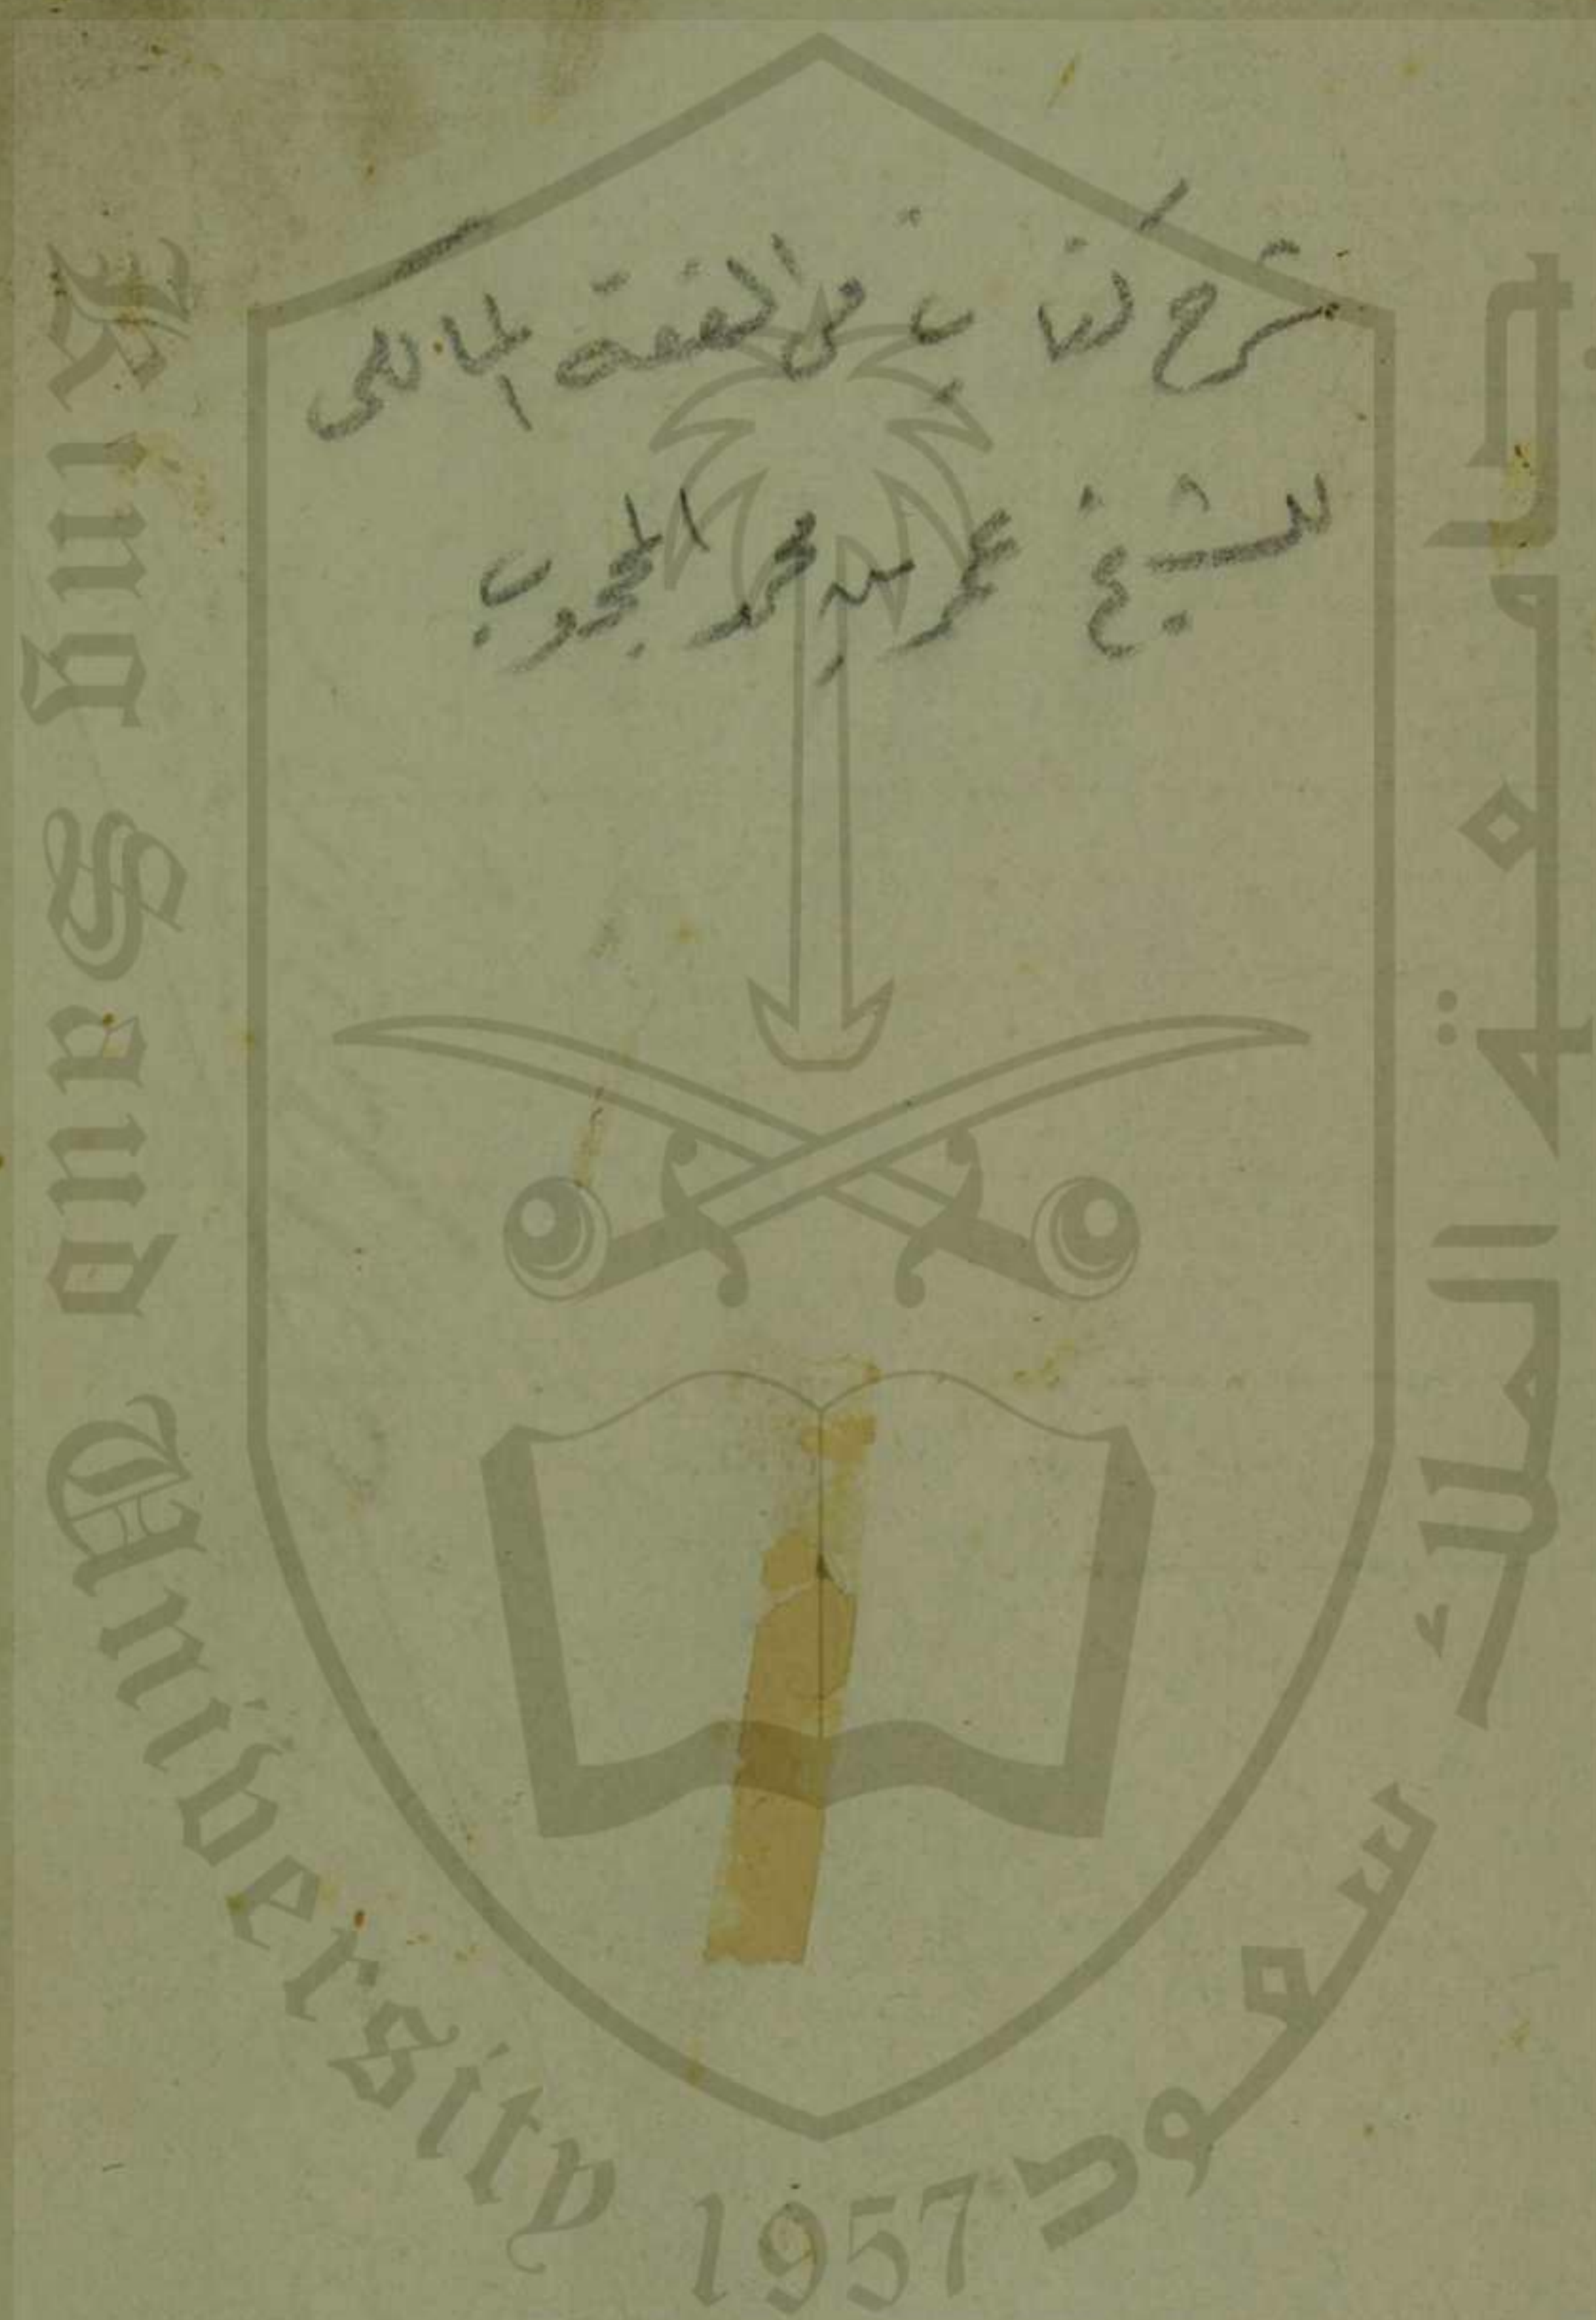 شرح كتاب في الفقه المالكي
للشيخ عمر بن محمد المحجوب
King Saud University
1957
جامعة الملك سعود